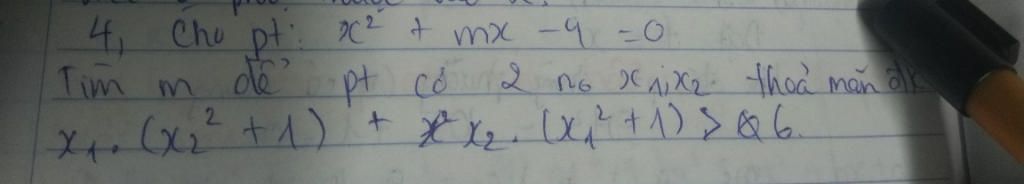 4, Cho pt: x² + mx - 4 = 0
Tìm m để pt có 2 no x₁,x₂ thoả mãn đk
x₁. (x₂² + 1) + x₂. (x₁² + 1) > 6.